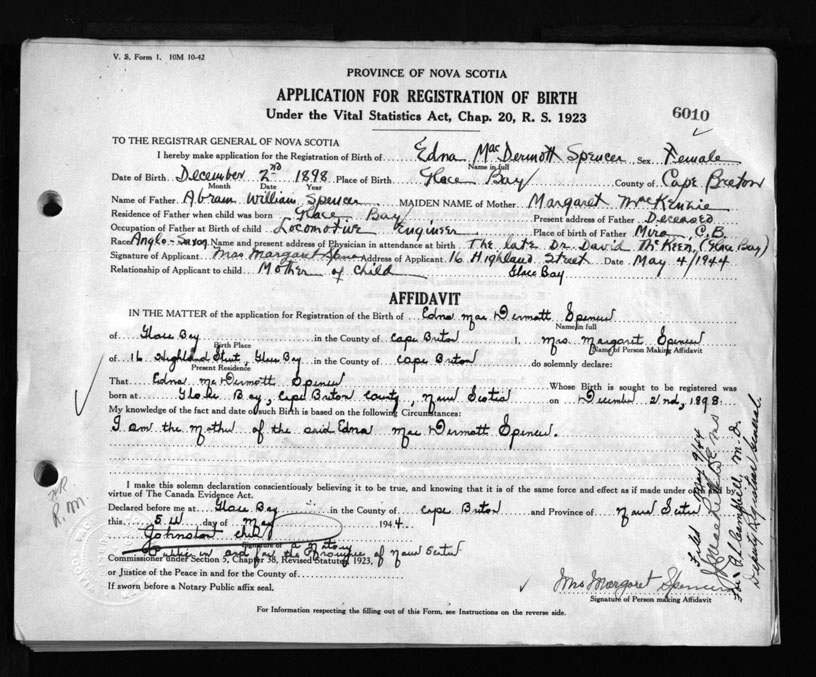 V. S. Form 1. 10M 10-42
PROVINCE OF NOVA SCOTIA
APPLICATION FOR REGISTRATION OF BIRTH
Under the Vital Statistics Act, Chap. 20, R. S. 1923
6010
TO THE REGISTRAR GENERAL OF NOVA SCOTIA
I hereby make application for the Registration of Birth of Edna MacDermott Spencer, Sex Female
Name in full
Date of Birth December 2nd 1898 Place of Birth Glace Bay County of Cape Breton
Month Date Year
Name of Father Abram William Spencer MAIDEN NAME of Mother Margaret MacKenzie
Residence of Father when child was born Glace Bay Present address of Father Deceased
Occupation of Father at Birth of child Locomotive Engineer Place of birth of Father Mira, C.B.
Race Anglo-Saxon Name and present address of Physician in attendance at birth The late Dr. David McKeen, (Glace Bay)
Signature of Applicant Mrs Margaret Spencer Address of Applicant 16 Highland Street Date May 4/1944
Relationship of Applicant to child Mother of child Glace Bay
AFFIDAVIT
IN THE MATTER of the application for Registration of the Birth of Edna Mac Dermott Spencer
Name in full
of Glace Bay in the County of Cape Breton I, Mrs. Margaret Spencer
Birth Place Name of Person Making Affidavit
of 16 Highland Street, Glace Bay in the County of Cape Breton do solemnly declare:
Present Residence
That Edna Mc Dermott Spencer Whose Birth is sought to be registered was
born at Glace Bay, Cape Breton County, Nova Scotia on December 2nd, 1898.
My knowledge of the fact and date of such Birth is based on the following Circumstances:
I am the mother of the said Edna Mac Dermott Spencer.
I make this solemn declaration conscientiously believing it to be true, and knowing that it is of the same force and effect as if made under oath and by
virtue of The Canada Evidence Act.
Declared before me at Glace Bay in the County of Cape Breton and Province of Nova Scotia
this 5th day of May 1944
Johnston
Signature of a Notary
Public in and for the Province of Nova Scotia
Commissioner under Section 5, Chapter 38, Revised Statutes 1923,
or Justice of the Peace in and for the County of
If sworn before a Notary Public affix seal.
Mrs Margaret Spencer
Signature of Person making Affidavit
For Information respecting the filling out of this Form, see Instructions on the reverse side.
Filed May 9/44
For P.L. Campbell, M.D.
Deputy Registrar General.
R.M.